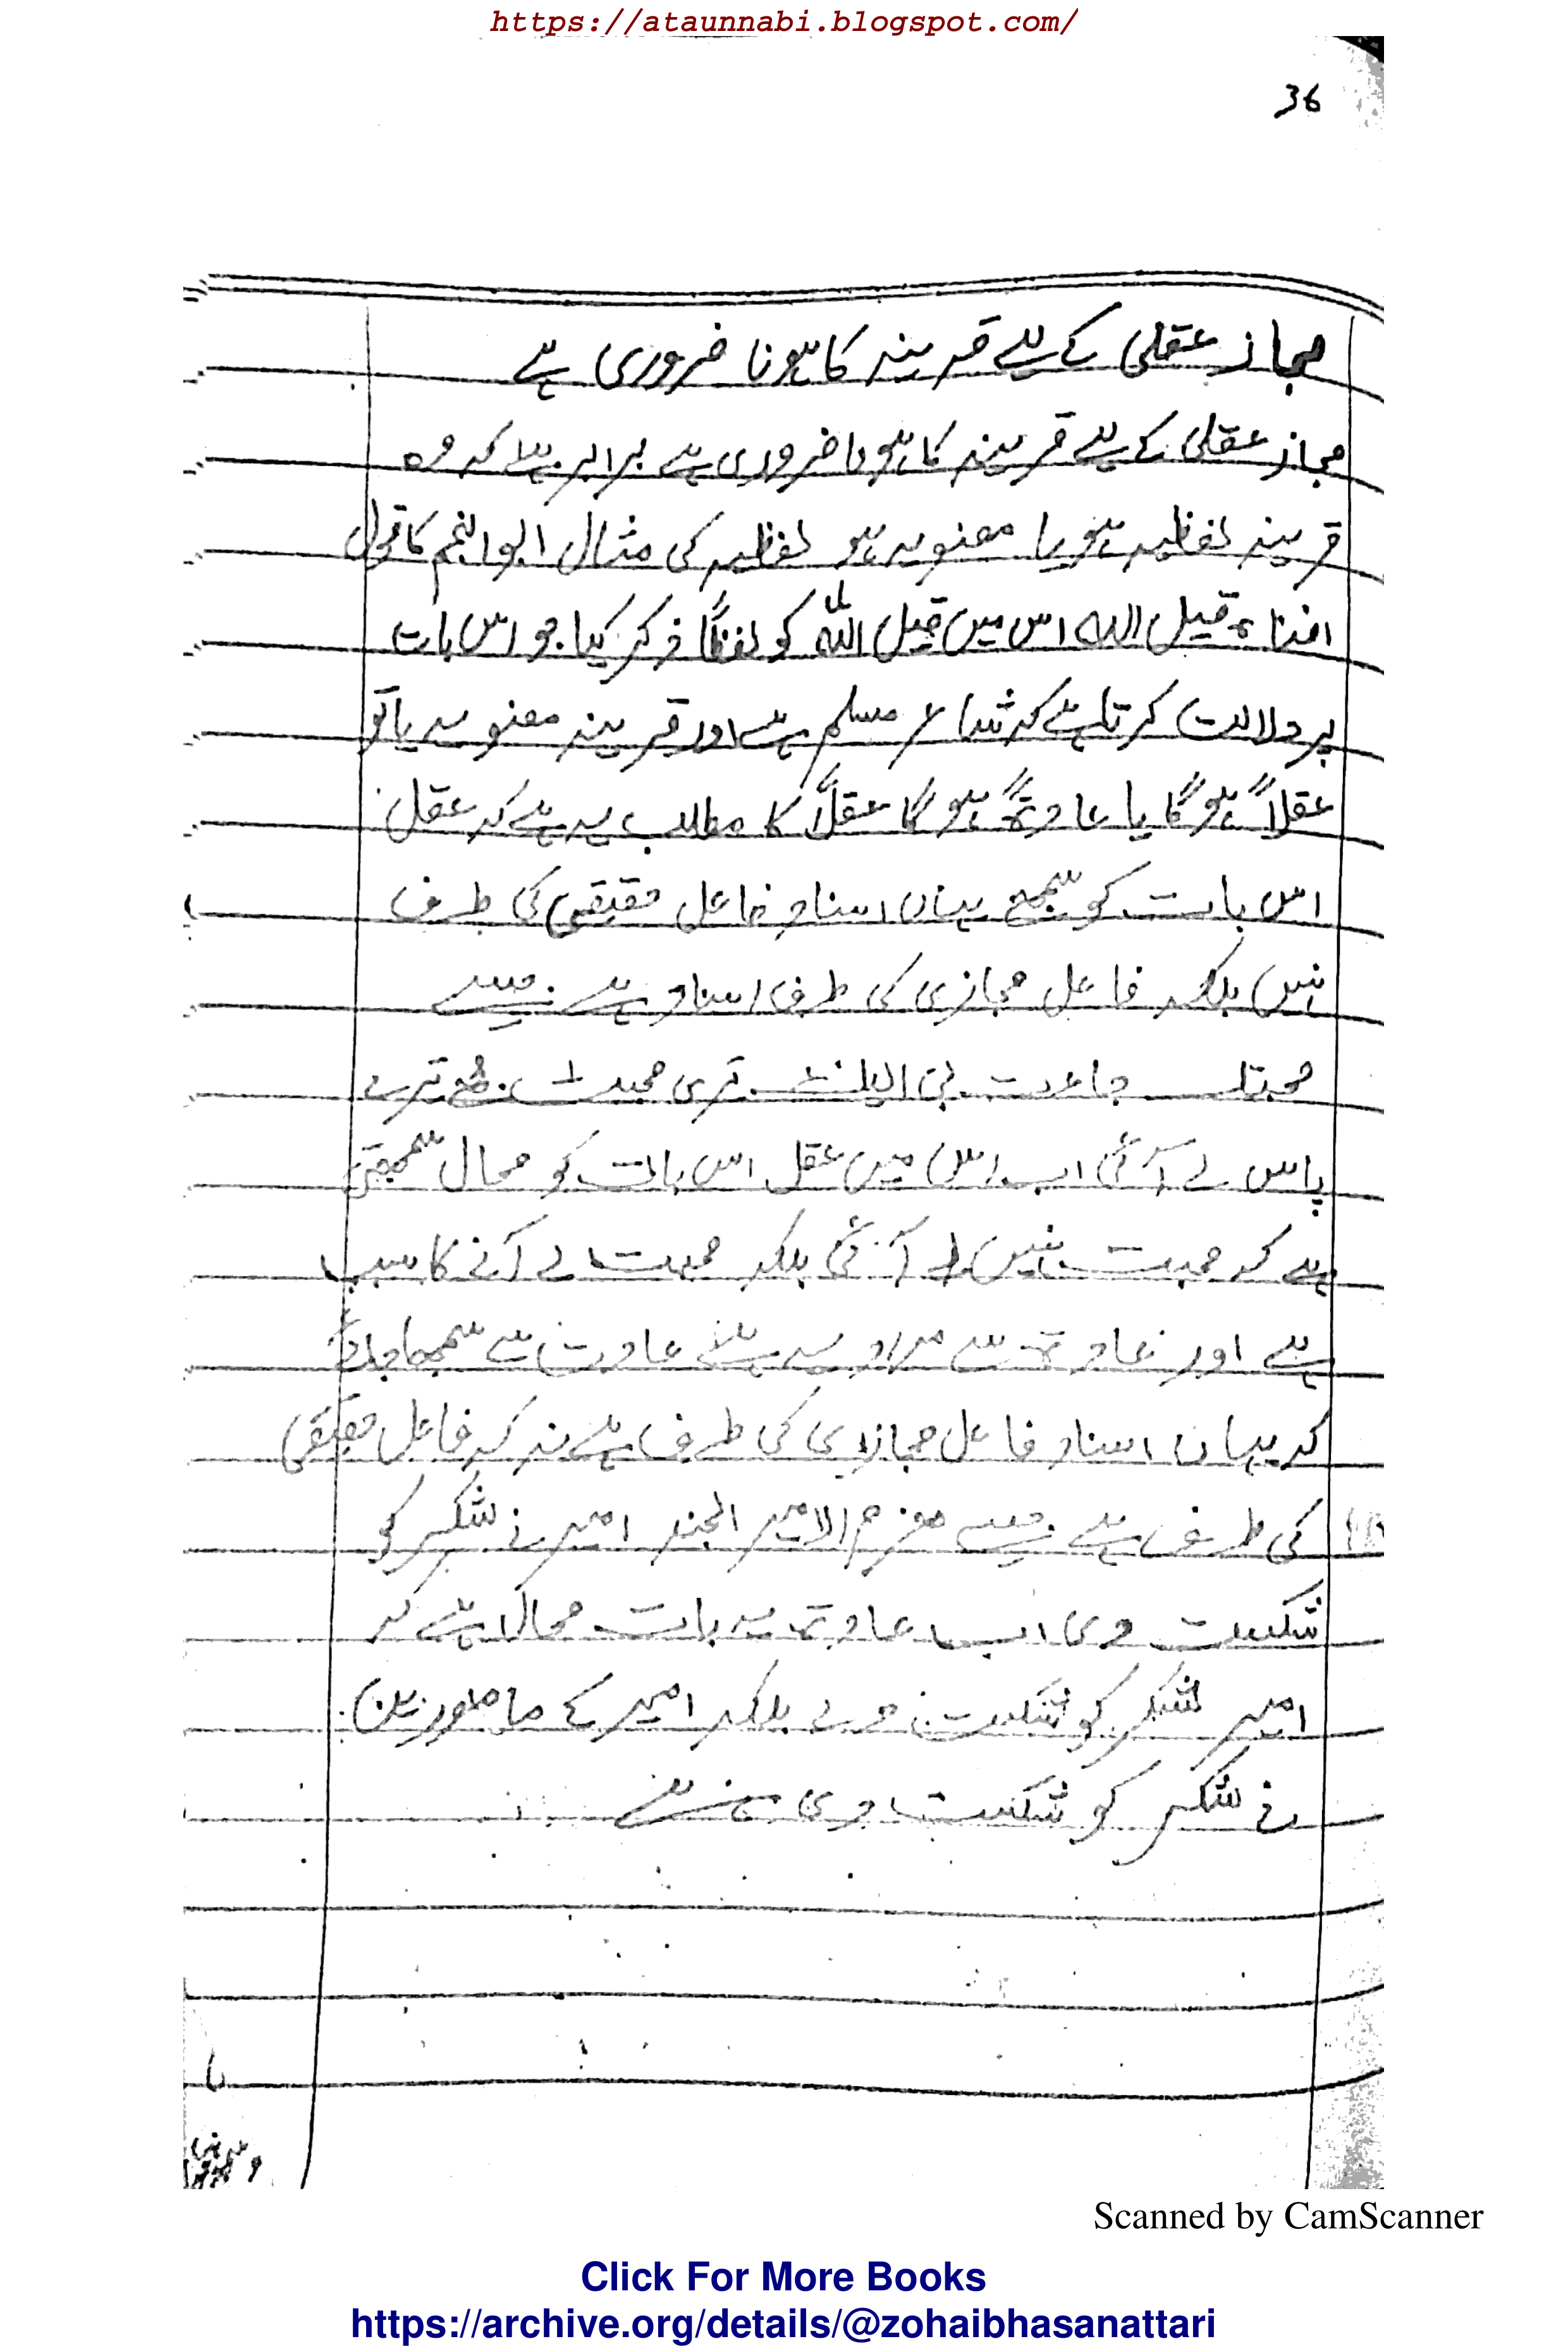 https://ataunnabi.blogspot.com/
36
مجاز عقلی کے لیے قرینہ کا ہونا ضروری ہے
مجاز عقلی کے لیے قرینہ کا ہونا ضروری ہے برابر ہے کہ وہ
قرینہ لفظیہ ہو یا معنویہ ہو لفظیہ کی مثال ابو النجم کا قول
افناہ قیل اللہ اس میں قیل اللہ کو لفظاً ذکر کیا جو اس بات
پر دلالت کرتا ہے کہ شاعر مسلم ہے اور قرینہ معنویہ یا تو
عقلاً ہو گا یا عادۃً ہو گا عقلاً کا مطلب یہ ہے کہ عقل
اس بات کو سمجھے یہاں اسناد فاعل حقیقی کی طرف
نہیں بلکہ فاعل مجازی کی طرف اسناد ہے جیسے
محبتک جاءت بی الیک تیری محبت مجھے تیرے
پاس لے آئی اب اس میں عقل اس بات کو محال سمجھتی
ہے کہ محبت نہیں لے آئی بلکہ محبت لے آنے کا سبب
ہے اور عادۃ سے مراد یہ ہے عادت سے سمجھا جائے
کہ یہاں اسناد فاعل مجازی کی طرف ہے نہ کہ فاعل حقیقی
کی طرف ہے جیسے ھزم الامیر الجند امیر نے لشکر کو
شکست دی اب عادۃ یہ بات محال ہے کہ
امیر لشکر کو شکست دے بلکہ امیر کے مامورین
نے لشکر کو شکست دی ہے
Scanned by CamScanner
Click For More Books
https://archive.org/details/@zohaibhasanattari